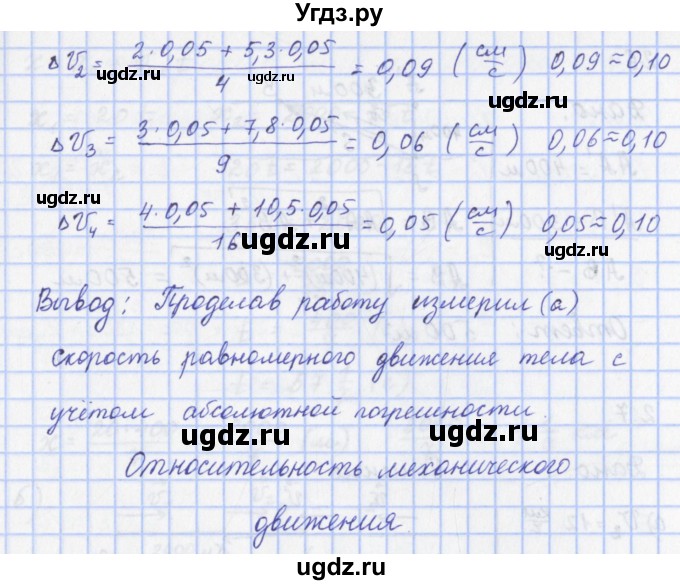 Угдз.ру
ΔV₂ = (2·0,05 + 5,3·0,05)/4 = 0,09 (см/с) 0,09≈0,10
ugdz.ru ugdz.ru ugdz.ru
ΔV₃ = (3·0,05 + 7,8·0,05)/9 = 0,06 (см/с) 0,06≈0,10
ugdz.ru
ΔV₄ = (4·0,05 + 10,5·0,05)/16 = 0,05 (см/с) 0,05≈0,10
ugdz.ru ugdz.ru
Вывод: Проделав работу измерил(а)
скорость равномерного движения тела с
учётом абсолютной погрешности.
ugdz.ru ugdz.ru
Относительность механического
движения.
ugdz.ru